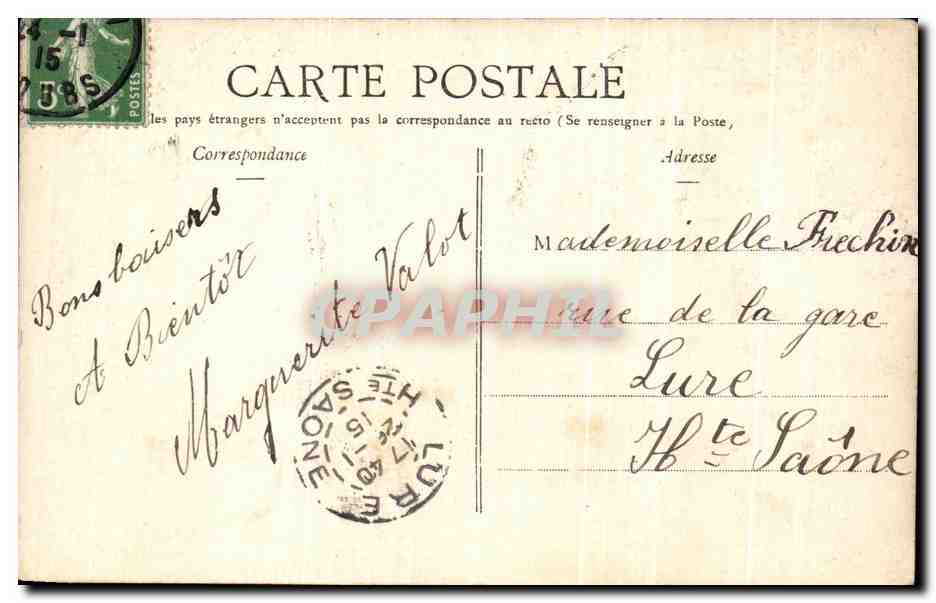 24 -1
15
5c
POSTES
CARTE POSTALE
les pays étrangers n'acceptent pas la correspondance au recto (Se renseigner à la Poste)
Correspondance
Adresse
Bons baisers
A Bientôt
Marguerite Valot
Mademoiselle Frechin
rue de la gare
Lure
Hte Saône
LURE
HTE SAONE
17 40
15
CPAPHIL